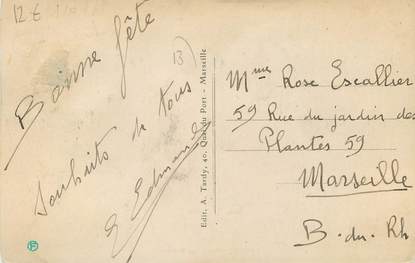 12 €
13
Bonne fête
souhaits de tous
E Edmond
Edit. A. Tardy, 40, Quai du Port - Marseille
Mme Rose Escallier
59 Rue du jardin des
Plantes 59
Marseille
B. du. Rh